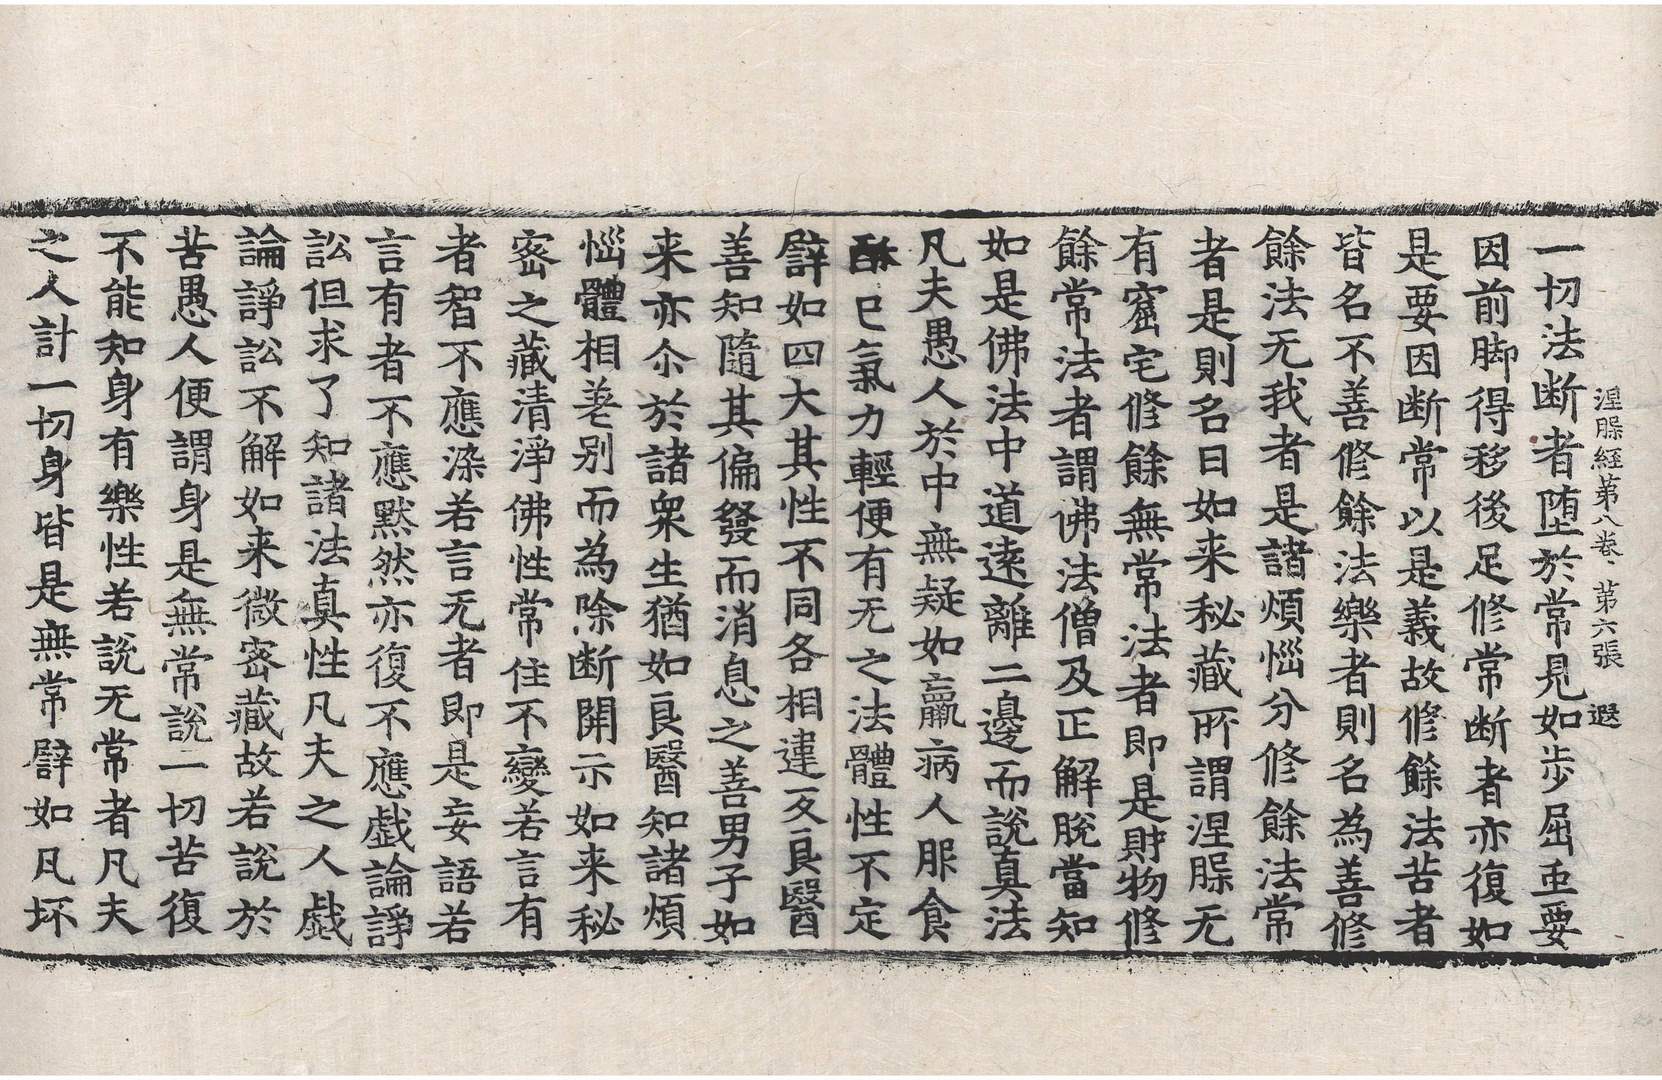 涅槃経第八卷、第六張 遐
一切法断者堕於常見如步屈重要
因前脚得移後足修常断者亦復如
是要因断常以是義故修餘法苦者
皆名不善修餘法樂者則名為善修
餘法无我者是諸煩惱分修餘法常
者是則名曰如来秘藏所謂涅槃无
有窟宅修餘無常法者即是財物修
餘常法者謂佛法僧及正解脫當知
如是佛法中道遠離二邊而說真法
凡夫愚人於中無疑如羸病人服食
酥已氣力輕便有无之法體性不定
譬如四大其性不同各相違反良醫
善知隨其偏發而消息之善男子如
来亦尒於諸衆生猶如良醫知諸煩
惱體相差别而為除断開示如来秘
密之藏清淨佛性常住不變若言有
者智不應染若言无者即是妄語若
言有者不應默然亦復不應戲論諍
訟但求了知諸法真性凡夫之人戲
論諍訟不解如来微密藏故若說於
苦愚人便謂身是無常說一切苦復
不能知身有樂性若說无常者凡夫
之人計一切身皆是無常譬如凡坏